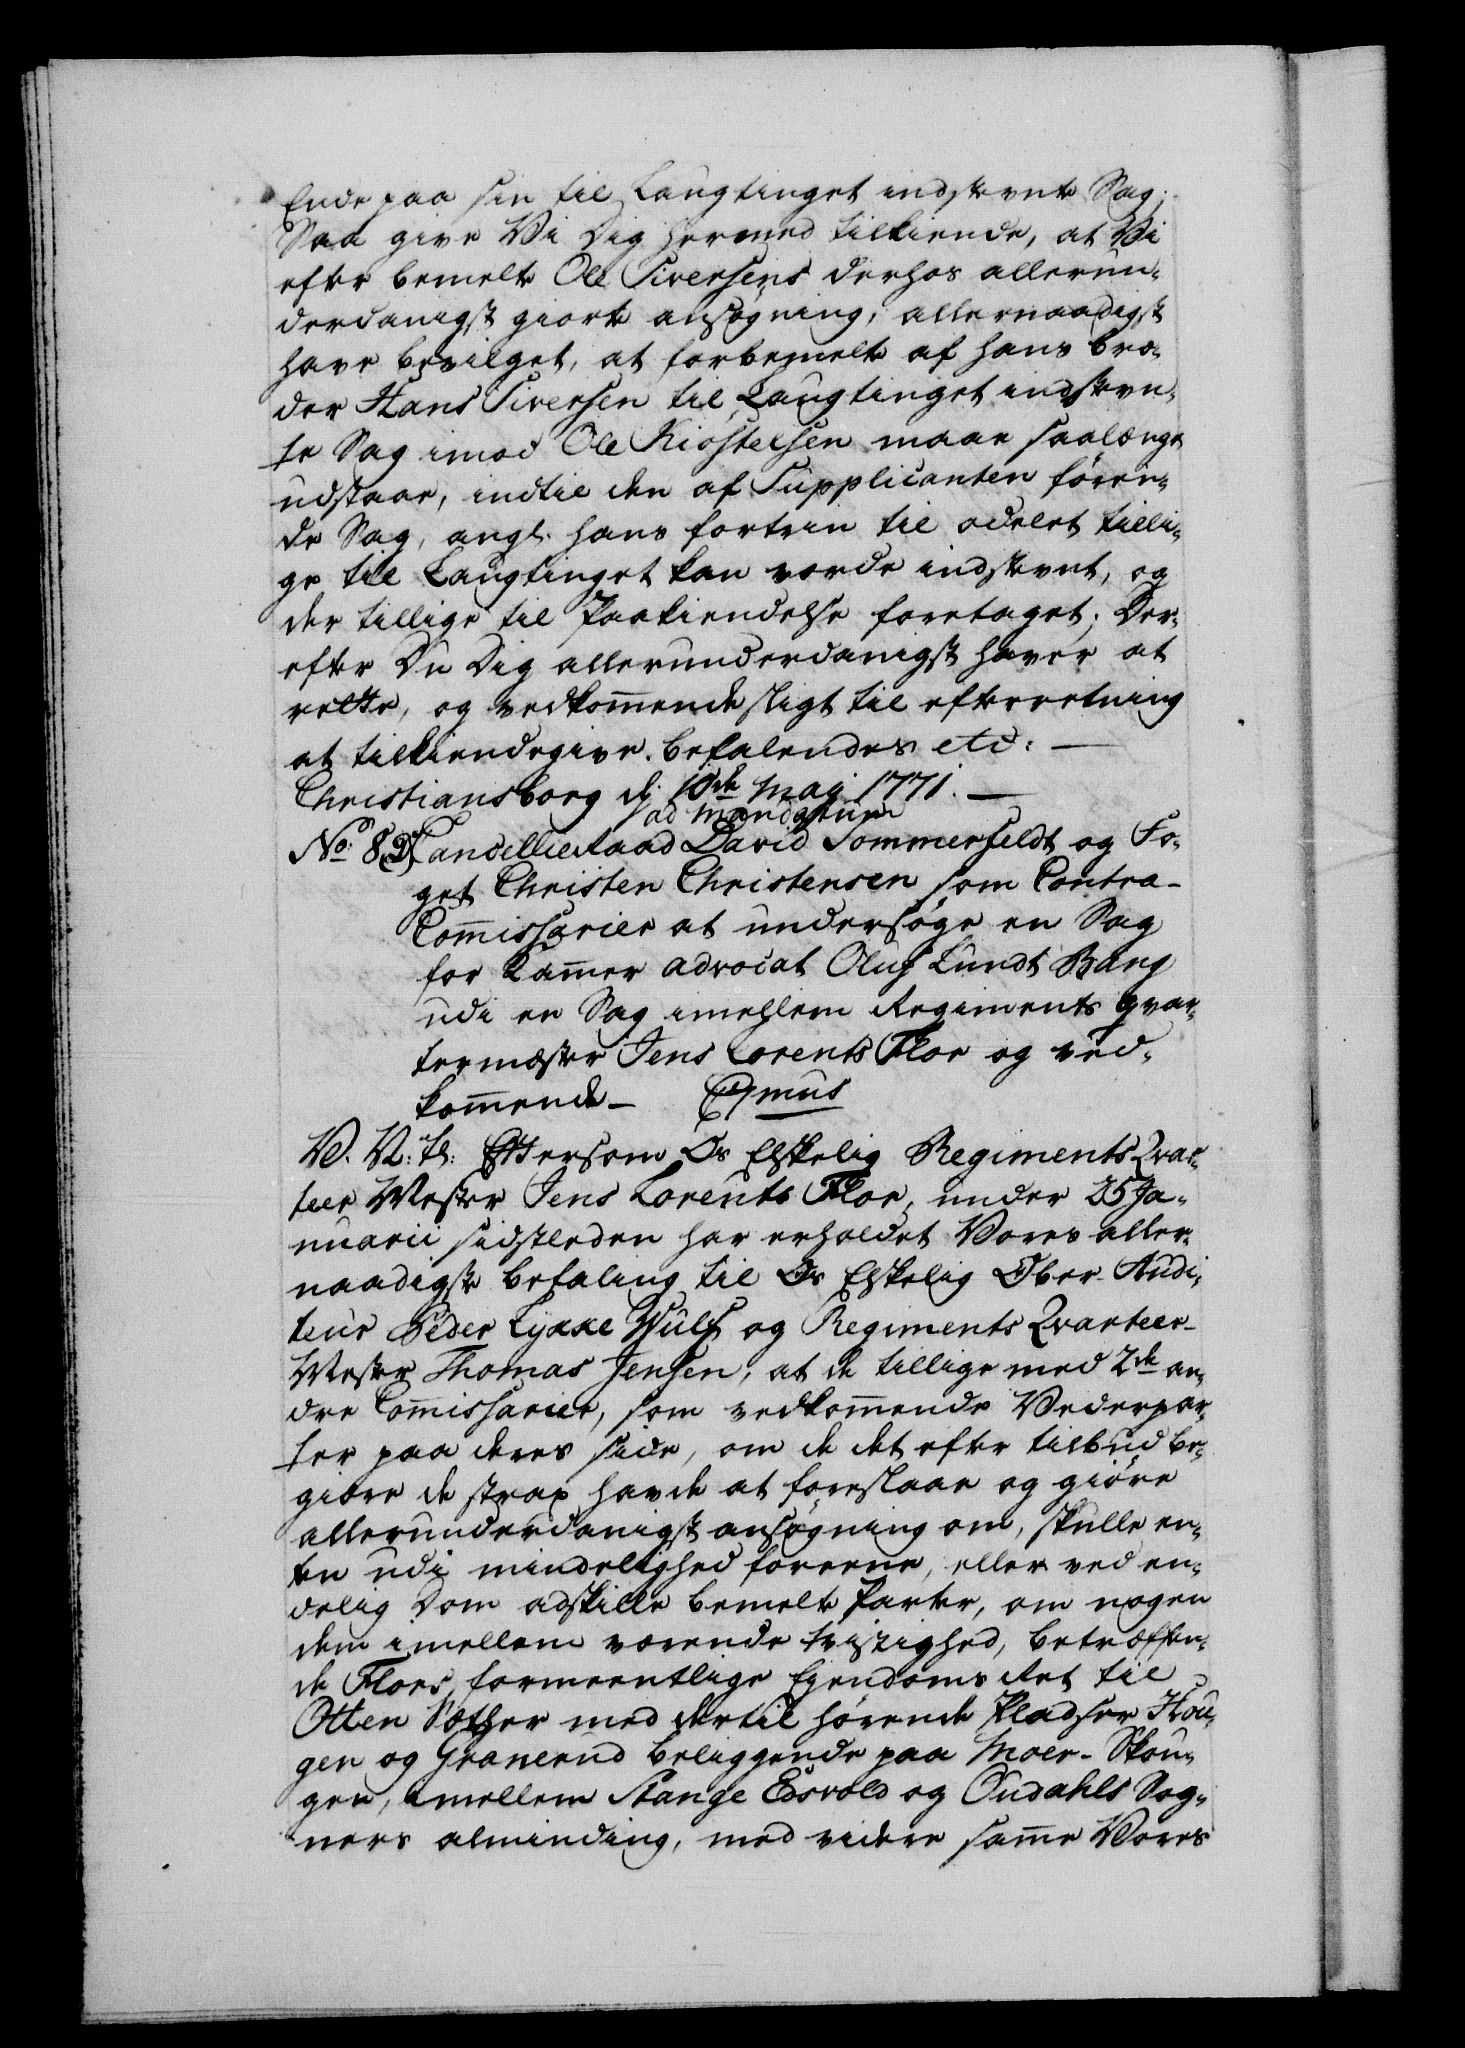 Ende paa sin til Laugtinget indstevnte Sag;
Saa give Vi Dig hermed tilkiende, at Vi
efter bemelte Ole Siversens derhos allerun-
derdanigst giorte ansøgning, allernaadigst
have bevilget, at forbemelte af hans bro-
der Hans Siversen til Laugtinget indstevn-
te Sag imod Ole Kiostelsen maae saalænge
udstaae, indtil den af Supplicanten føren-
de Sag, angl. hans fortrin til odelet tilli-
ge til Laugtinget kan vorde indstevnt, og
der tillige til Paakiendelse foretaget; Der-
efter Du Dig allerunderdanigst haver at
rette, og vedkom̅ende sligt til efterretning
at tilkiendegive. befalendes etc: —
Christiansborg d. 10de Maj 1771. —
ad mandatum
No. 82 Cancellieraad David Sommerfeldt og Fo-
get Christen Christensen som Contra-
Com̅issarier at undersøge en Sag
for Kam̅er advocat Oluf Lundt Bang
udi en Sag imellem Regiments qvar-
termester Jens Lorents Floe og ved-
kom̅ende —
V. V: t: Eftersom Os Elskelig Regiments Qvar-
teer Mester Jens Lorents Floe, under 25 Ja-
nuarii sidstleden har erholdet Vores aller-
naadigste befaling til Os Elskelig Ober-Audi-
teur Peder Lykke Wulf og Regiments Qvarteer-
Mester Thomas Jensen, at de tillige med 2de an-
dre Com̅issarier, som vedkom̅ende Vederpar-
ter paa deres side, om de det efter tilbud be-
giære de strax havde at foreslaae og giøre
allerunderdanigst ansøgning om, skulle en-
ten udi mindelighed foreene, eller ved en-
delig Dom adskille bemelte Parter, om nogen
dem imellem værende tvistighed, betræffen-
de Floes formeentlige Ejendoms Ret til
Otten Sæther med dertil hørende Pladser Hou-
gen og Granerud beliggende paa Moer-Skou-
gen, imellem Stange Edsvold og Oudahls Sog-
ners alminding, med videre sam̅e Vores